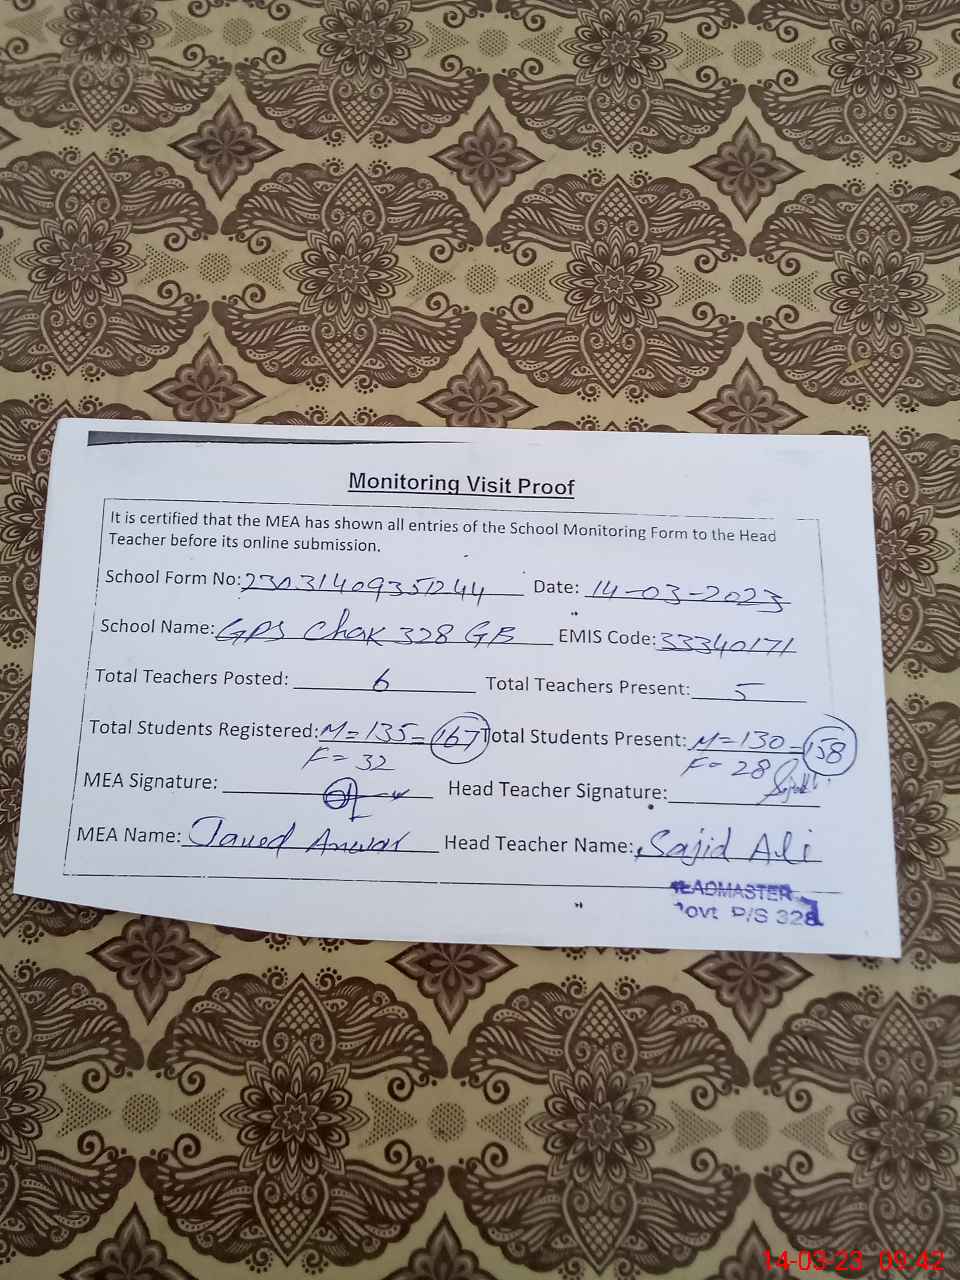 Monitoring Visit Proof
It is certified that the MEA has shown all entries of the School Monitoring Form to the Head
Teacher before its online submission.
School Form No: 23031409351244 Date: 14-03-2023
School Name: GPS Chak 328 GB EMIS Code: 33340171
Total Teachers Posted: 6 Total Teachers Present: 5
Total Students Registered: M=135=167 Total Students Present: M=130=158
F=32 F=28
MEA Signature: Head Teacher Signature:
MEA Name: Javed Anwar Head Teacher Name: Sajid Ali
HEADMASTER
Govt P/S 328
14-03-23 09:42